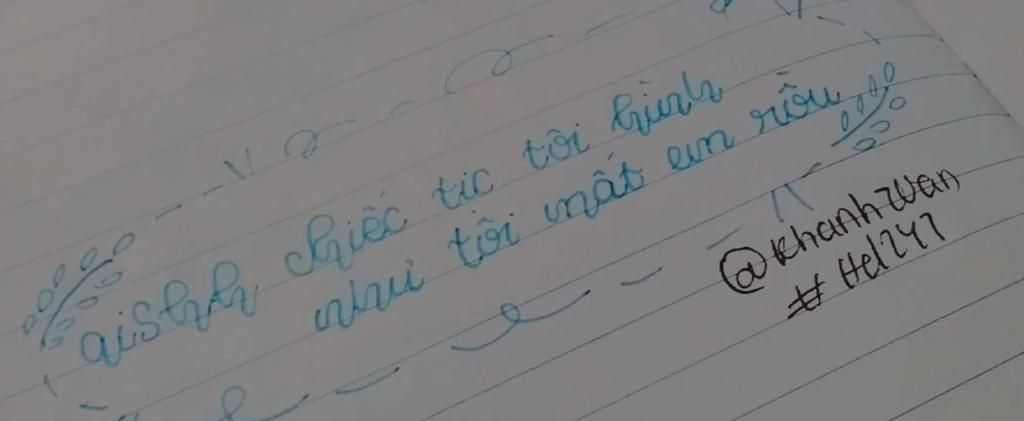 aishh chiếc tic tôi hình
như tôi mất em rồi
@khanhzuan
#Hel247